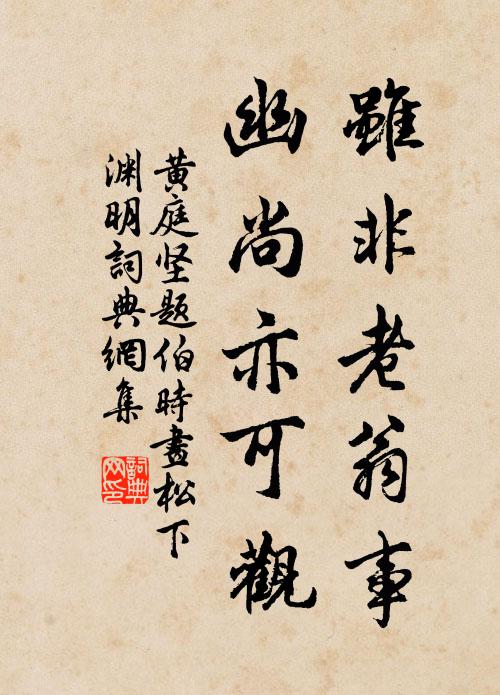 雖非老翁事
幽尚亦可觀
黄庭坚題伯時畫松下
渊明詞典網集
詞典
网印